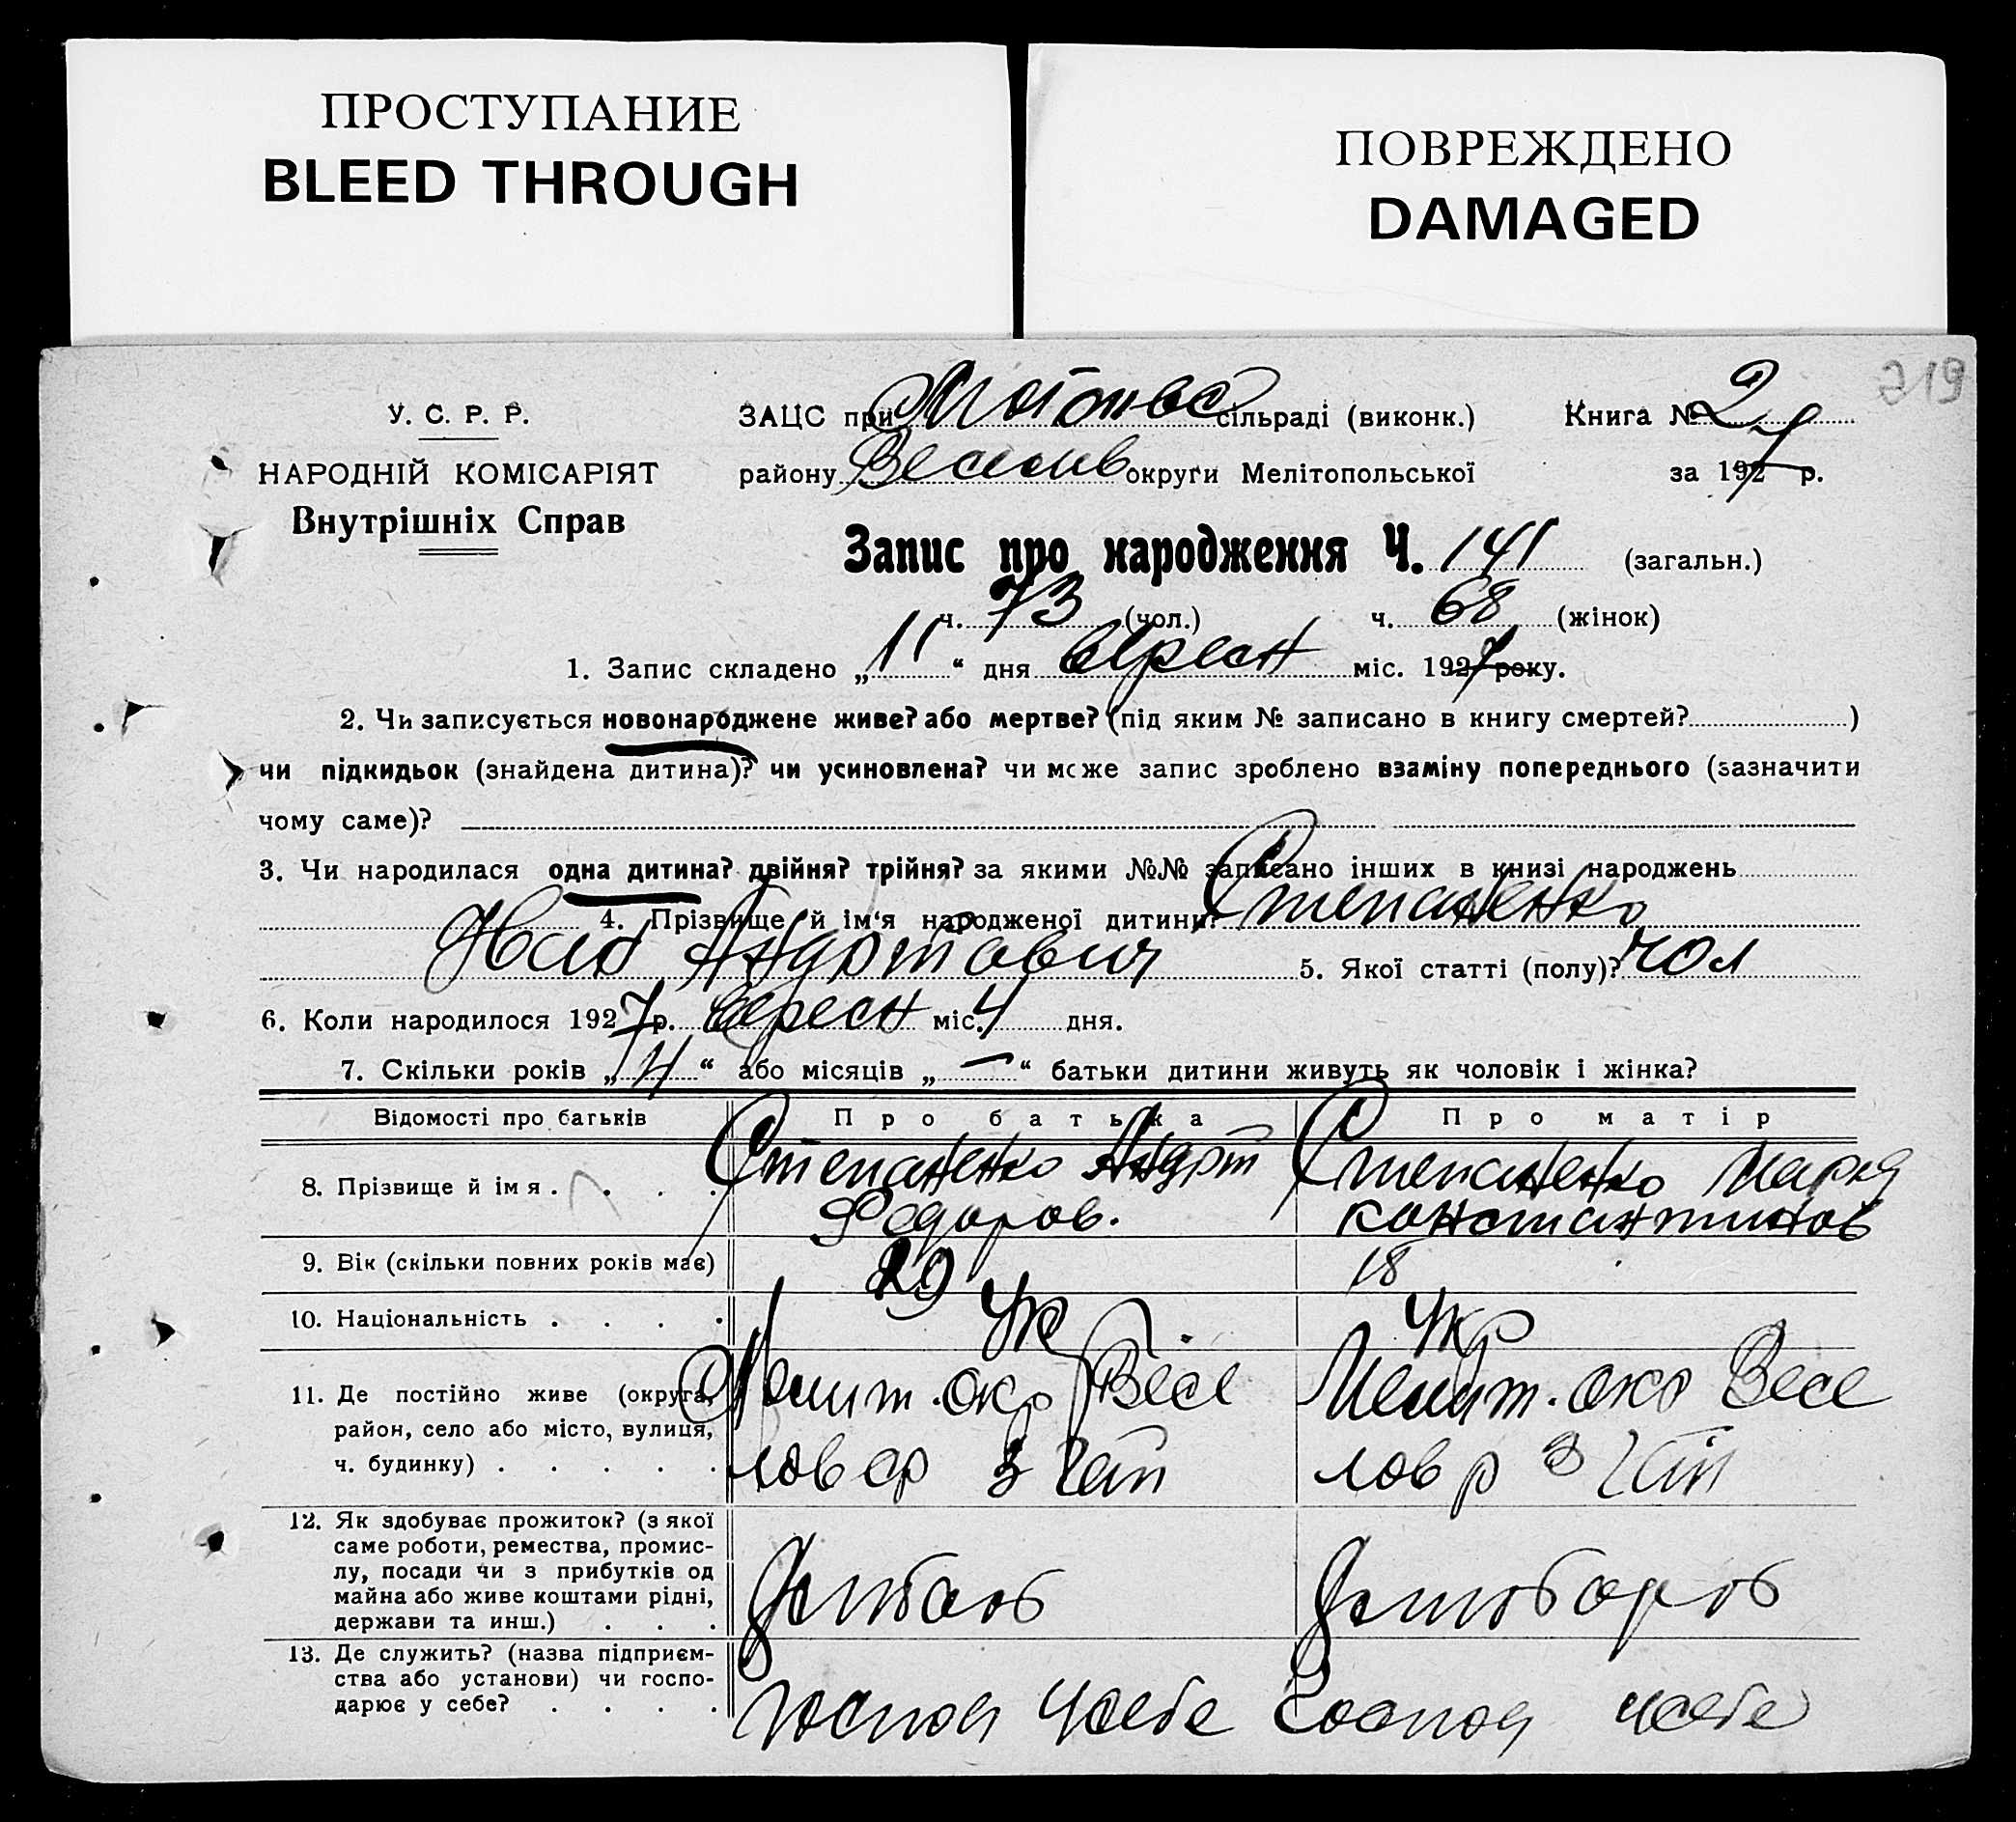 ПРОСТУПАНИЕ
BLEED THROUGH
ПОВРЕЖДЕНО
DAMAGED
219
У. С. Р. Р.
НАРОДНІЙ КОМІСАРІЯТ
Внутрішніх Справ
ЗАЦС при сільраді (виконк.) Книга № 2
району Веселів округи Мелітопольської за 1927 р.
Запис про народження Ч. 141 (загальн.)
ч. 73 (чол.) ч. 68 (жінок)
1. Запис складено „11“ дня Вересн міс. 1927 року.
2. Чи записується новонароджене живе? або мертве? (під яким № записано в книгу смертей? )
чи підкидьок (знайдена дитина)? чи усиновлена? чи може запис зроблено взаміну попереднього (зазначити
чому саме)?
3. Чи народилася одна дитина? двійня? трійня? за якими №№ записано інших в книзі народжень
4. Прізвище й ім‘я народженої дитини? Степаненко
Андротович 5. Якої статті (полу)? чол
6. Коли народилося 1927 р. Вересн міс. 4 дня.
7. Скільки років „4“ або місяців „—“ батьки дитини живуть як чоловік і жінка?
Відомості про батьків Про батька Про матір
8. Прізвище й імя . . . . Степаненко Андрот Степаненко Мария
Федоров. константинов
9. Вік (скільки повних років має) 29 18
10. Національність . . . . Укр Укр
11. Де постійно живе (округа, Мелит. окр Весе Мелит. окр Весе
район, село або місто, вулиця,
ч. будинку) . . . . . лов р лов р
12. Як здобуває прожиток? (з якої
саме роботи, ремества, промис-
лу, посади чи з прибутків од
майна або живе коштами рідні,
держави та инш.) . . .
13. Де служить? (назва підприєм-
ства або установи) чи госпо-
дарює у себе? . . . . господ усебе господ усебе